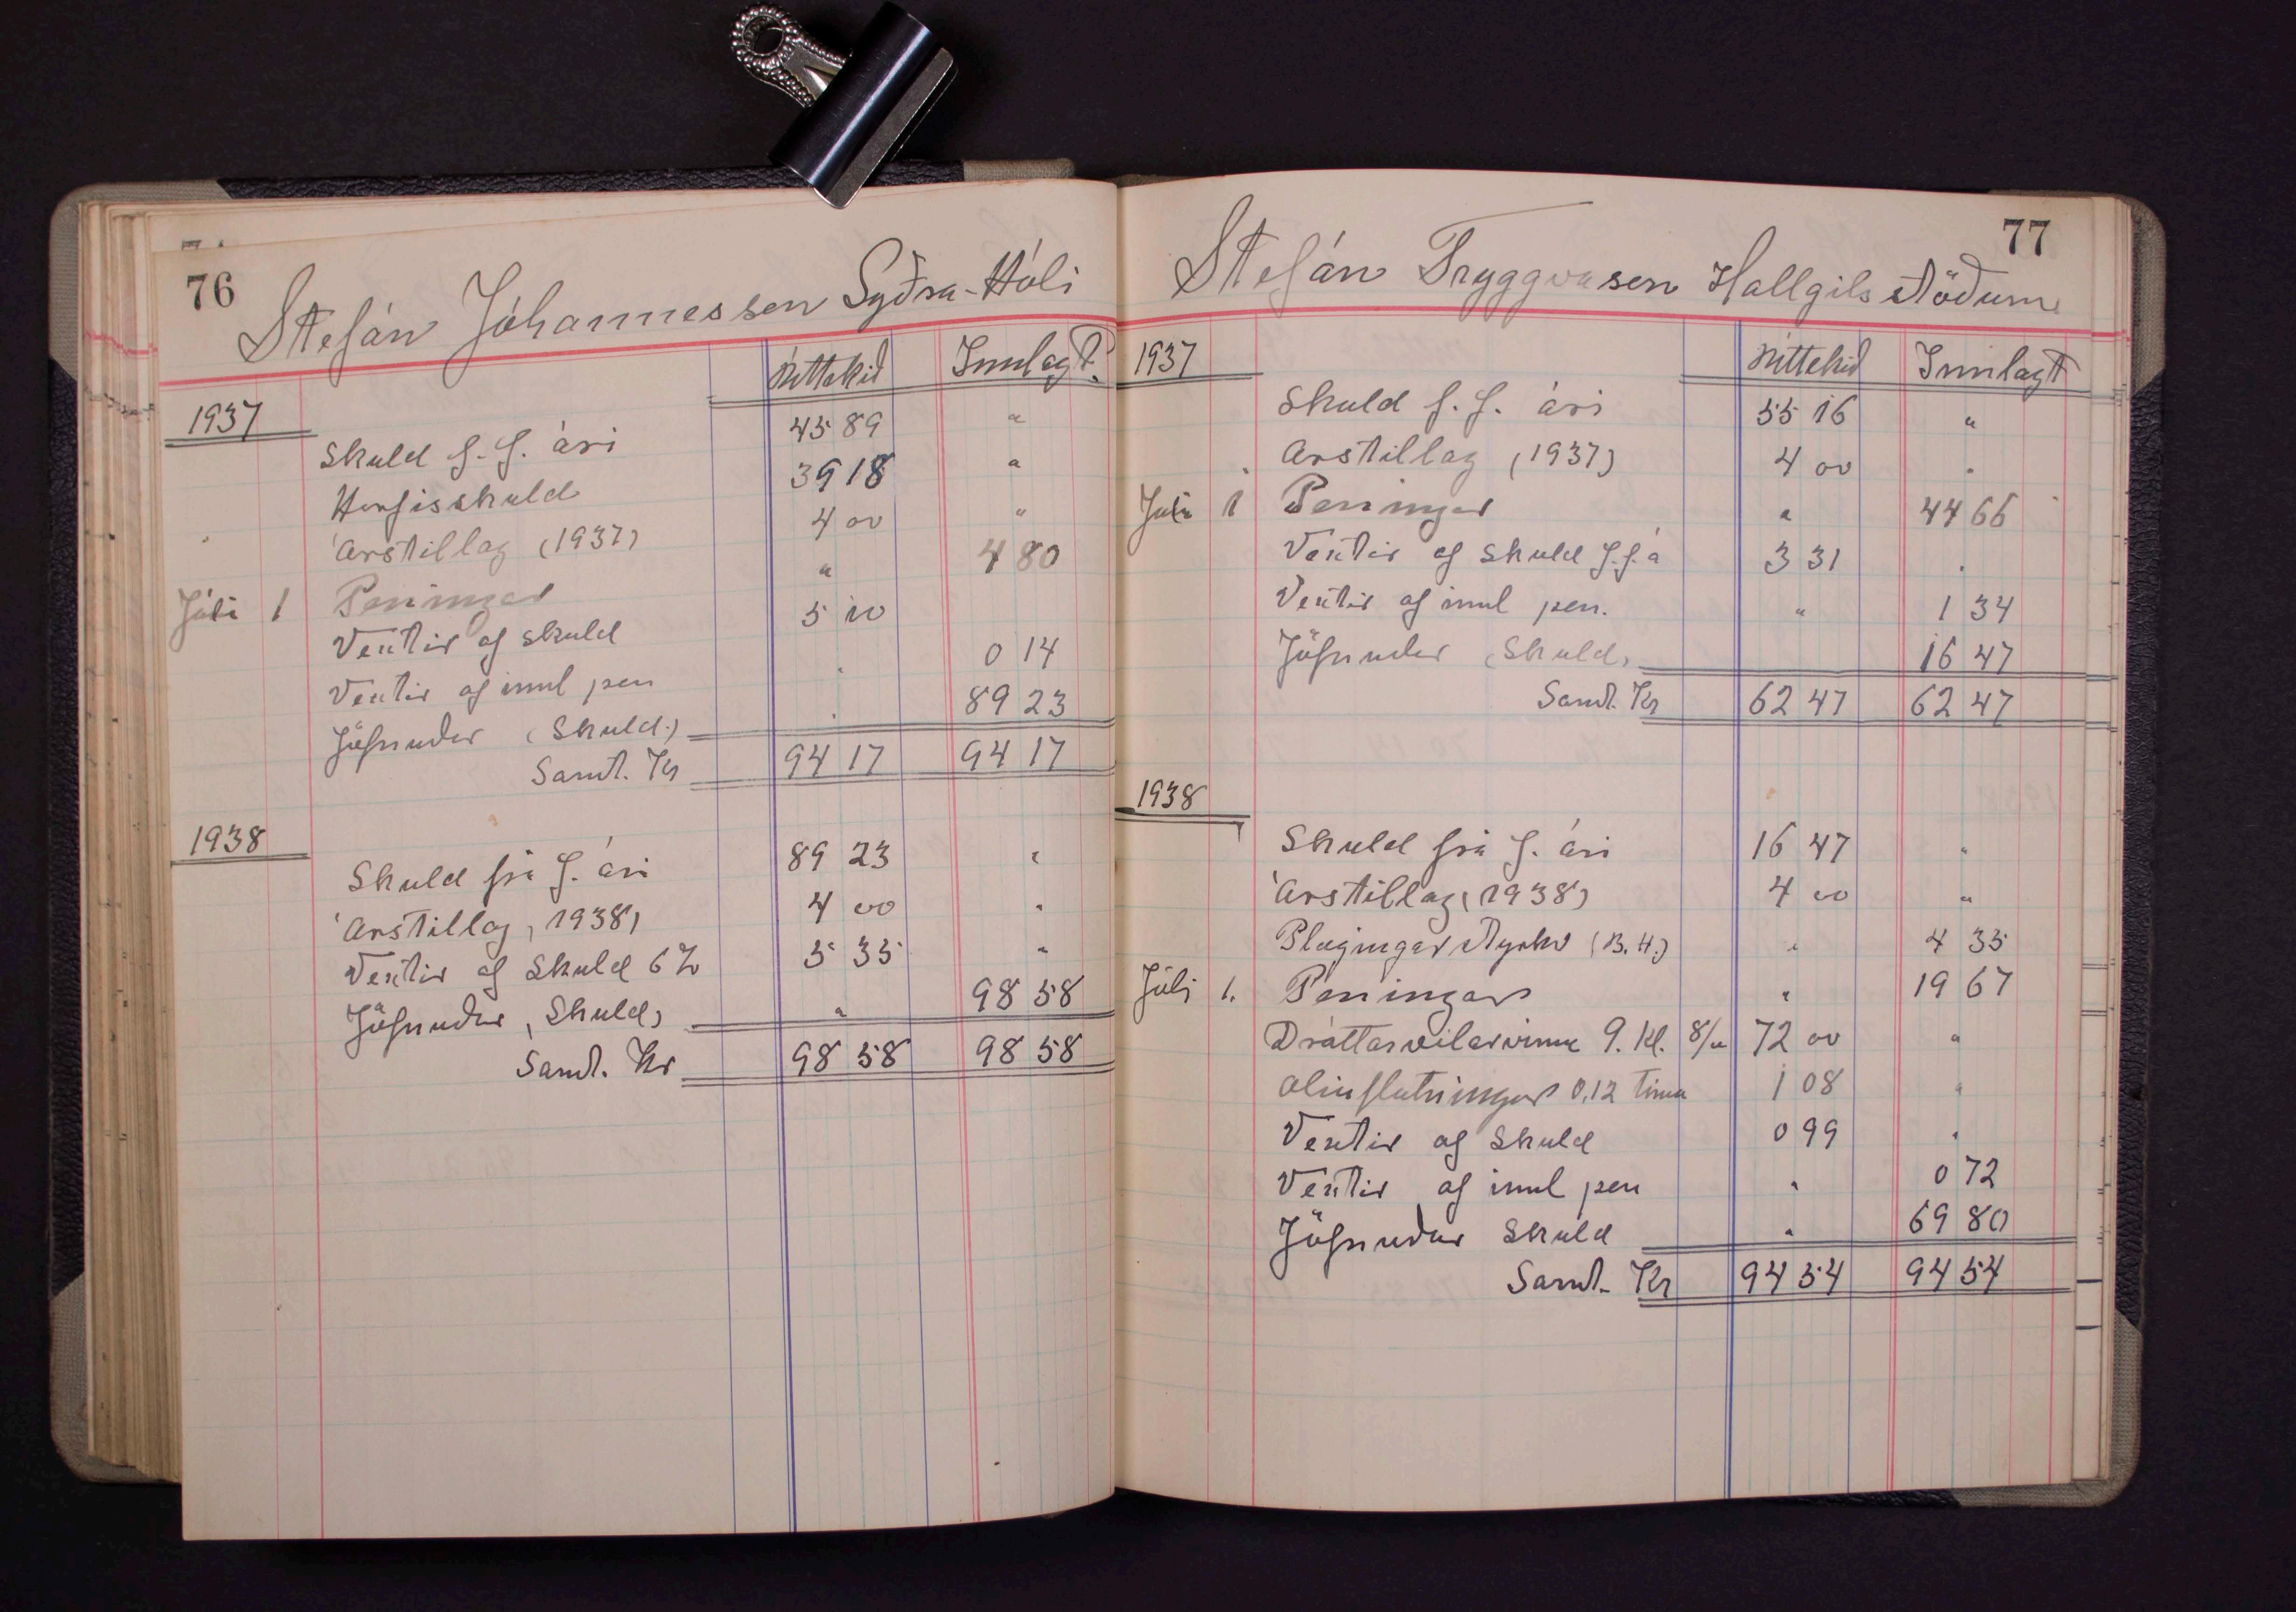 76
Stefán Jóhannesson Syðra-Hóli
Úttekið Innlagt.
1937
Skuld f. f. ári 45 89 "
Herfisskuld 39 18 "
Árstillag (1937) 4 00 "
Júlí 1 Peningar " 4 80
Vextir af skuld 5 10
Vextir af innl pen " 0 14
Jöfnuður (Skuld.) " 89 23
Samt. Kr 94 17 94 17
1938
Skuld frá f. ári 89 23 "
Árstillag (1938) 4 00 "
Vextir af skuld 6% 5 35 "
Jöfnuður (Skuld) " 98 58
Samt. Kr 98 58 98 58
77
Stefán Tryggvason Hallgilsstöðum
1937 Úttekið Innlagt
Skuld f. f. ári 55 16 "
Árstillag (1937) 4 00 "
Júlí 1 Peningar " 44 66
Vextir af skuld f.f.á 3 31 "
Vextir af innl pen. " 1 34
Jöfnuður (Skuld) 16 47
Samt. Kr 62 47 62 47
1938
Skuld frá f. ári 16 47 "
Árstillag (1938) 4 00 "
Plægingarstyrkur (B.H.) " 4 35
Júlí 1. Peningar " 19 67
Dráttarvélavinna 9. kl. 8/- 72 00 "
Olíuflutningar 0,12 tíma 1 08 "
Vextir af skuld 0 99 "
Vextir af innl pen " 0 72
Jöfnuður skuld " 69 80
Samt. Kr 94 54 94 54